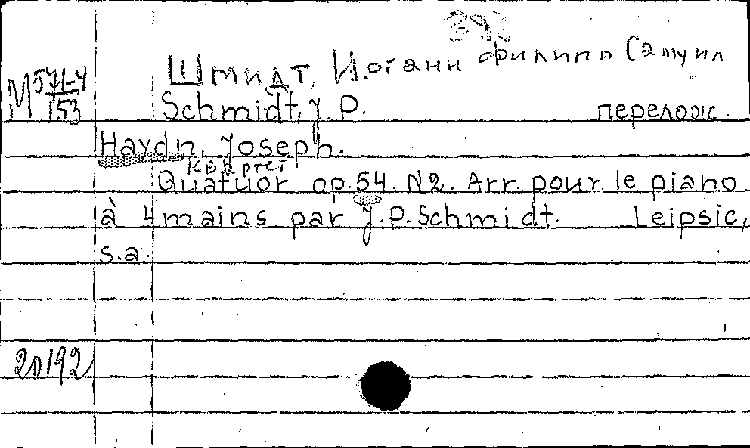 Шмидт, Иоганн Филипп Самуил
М 571-4
153
Schmidt, J. P. перелож.
Haydn, Joseph.
Квартет
Quatuor op. 54. N2. Arr. pour le piano
à 4 mains par J. P. Schmidt. Leipsic,
s. a.
20192